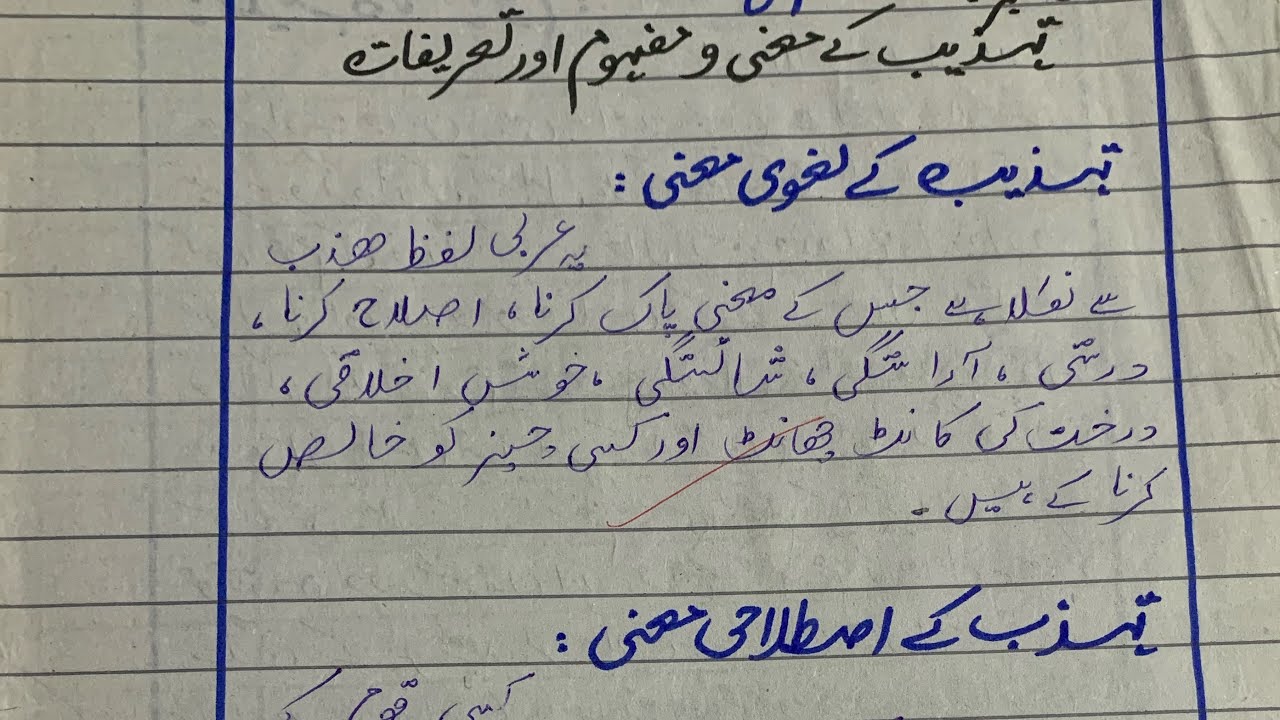 تہذیب کے معنی و مفہوم اور تعریفات
تہذیب کے لغوی معنی :
یہ عربی لفظ ھذب
سے نکلا ہے جس کے معنی پاک کرنا، اصلاح کرنا،
درستی ، آراستگی ، شائستگی ، خوش اخلاقی ،
درخت کی کانٹ چھانٹ اور کسی چیز کو خالص
کرنا کے ہیں ۔
تہذب کے اصطلاحی معنی :
کسی قوم کے